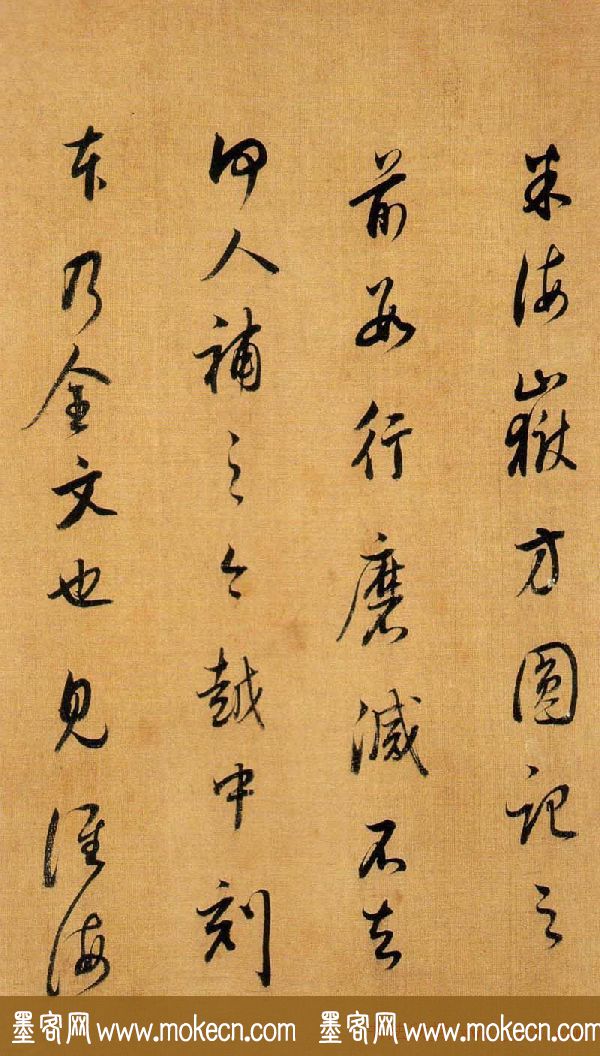 米海嶽方圓記之
前數行磨滅不知
何人補之今越中刻
本乃全文也見淮海
墨客网 www.mokecn.com 墨客网 www.mokecn.com